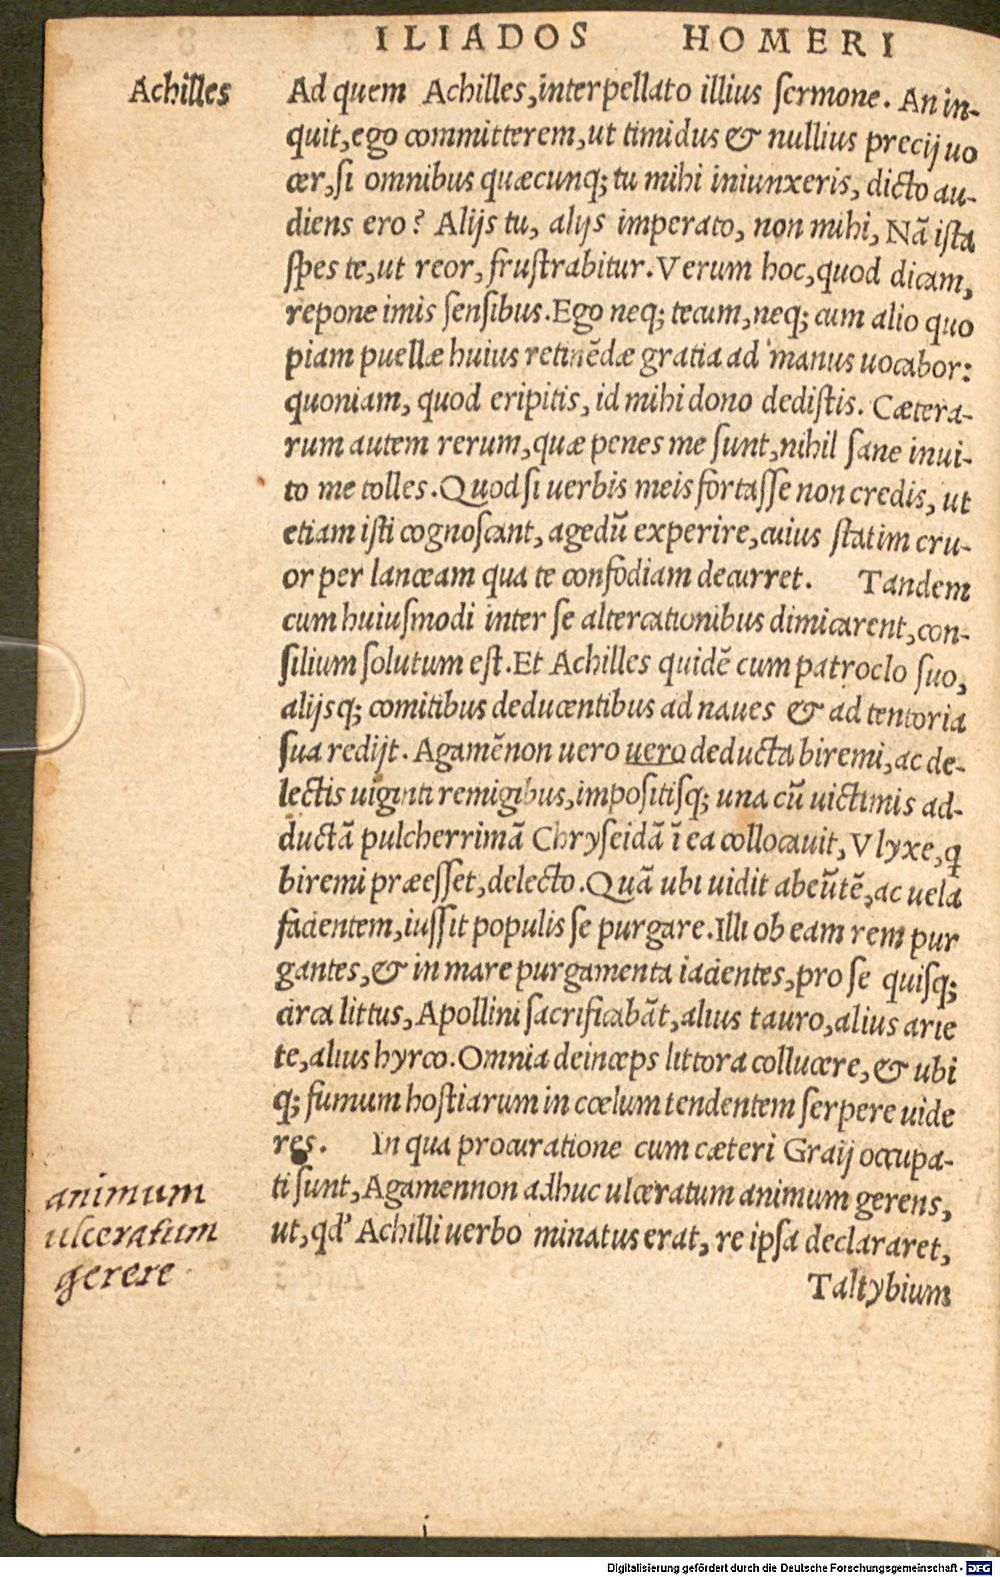 ILIADOS HOMERI
Achilles
Ad quem Achilles,interpellato illius ſermone. An in-
quit,ego committerem,ut timidus & nullius precij uo
cer,ſi omnibus quæcunq; tu mihi iniunxeris, dicto au-
diens ero? Alijs tu, alijs imperato, non mihi, Nã iſta
ſpes te,ut reor, fruſtrabitur. Verum hoc,quod dicam,
repone imis ſenſibus. Ego neq; tecum,neq; cum alio quo
piam puellæ huius retinẽdæ gratia ad manus uocabor:
quoniam, quod eripitis, id mihi dono dediſtis. Cætera-
rum autem rerum,quæ penes me ſunt,nihil ſane inui-
to me tolles. Quod ſi uerbis meis fortaſſe non credis, ut
etiam iſti cognoſcant, agedũ experire,cuius ſtatim cru-
or per lanceam qua te confodiam decurret. Tandem
cum huiuſmodi inter ſe altercationibus dimicarent,con-
ſilium ſolutum eſt. Et Achilles quidẽ cum patroclo ſuo,
alijsq; comitibus deducentibus ad naues & ad tentoria
ſua redijt. Agamẽnon uero uero deducta biremi,ac de-
lectis uiginti remigibus,impoſitiſq; una cũ uictimis ad-
ductã pulcherrimã Chryſeidã ĩ ea collocauit, Vlyxe,q
biremi præeſſet,delecto. Quã ubi uidit abeũtẽ,ac uela
facientem,iuſſit populis ſe purgare. Illi ob eam rem pur
gantes,& in mare purgamenta iacientes,pro ſe quiſq;
circa littus, Apollini ſacrificabãt,alius tauro,alius arie
te,alius hyrco. Omnia deinceps littora collucere,& ubi
q; fumum hoſtiarum in cœlum tendentem ſerpere uide
res. In qua procuratione cum cæteri Graij occupa-
ti ſunt, Agamennon adhuc ulceratum animum gerens,
ut,qd' Achilli uerbo minatus erat, re ipſa declararet,
animum
ulceratum
gerere
Taltybium
Digitalisierung gefördert durch die Deutsche Forschungsgemeinschaft - DFG